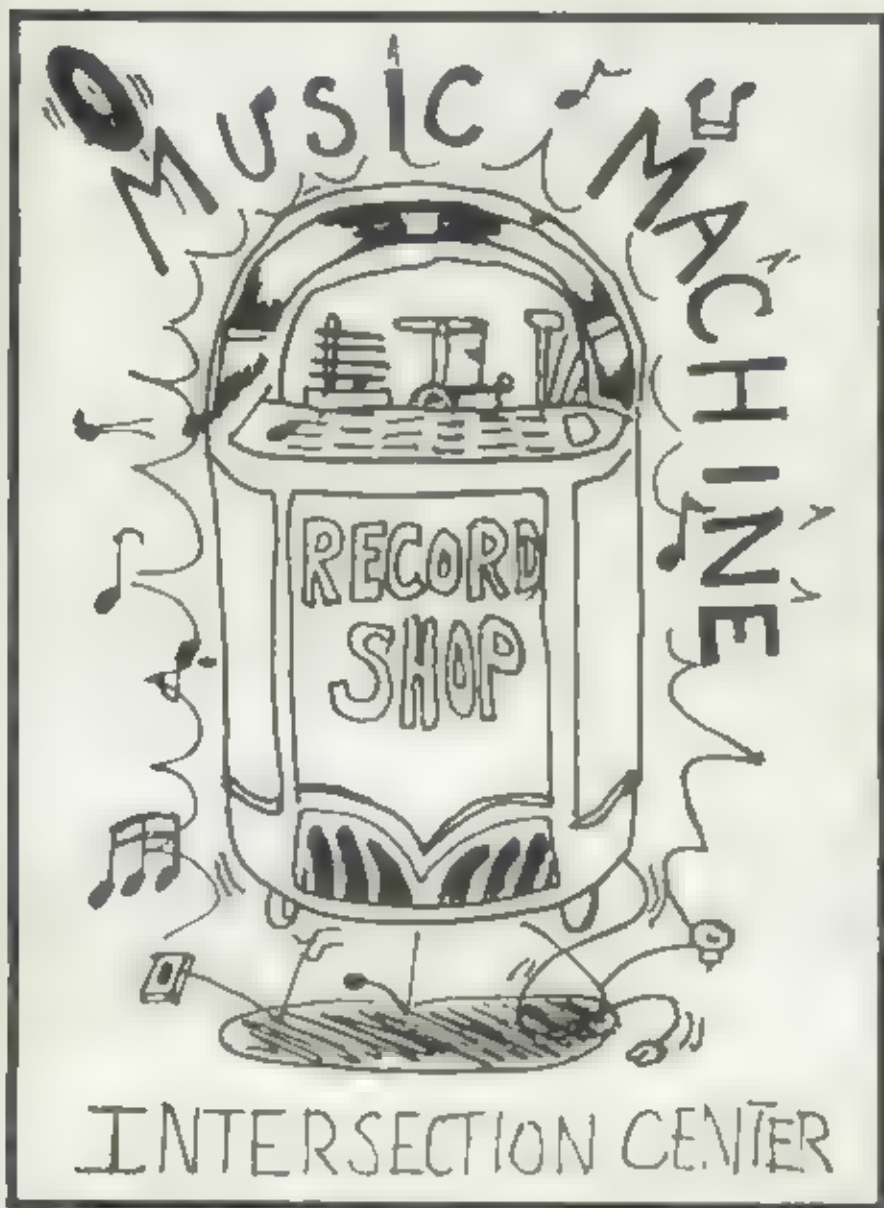 MUSIC MACHINE
RECORD
SHOP
INTERSECTION CENTER